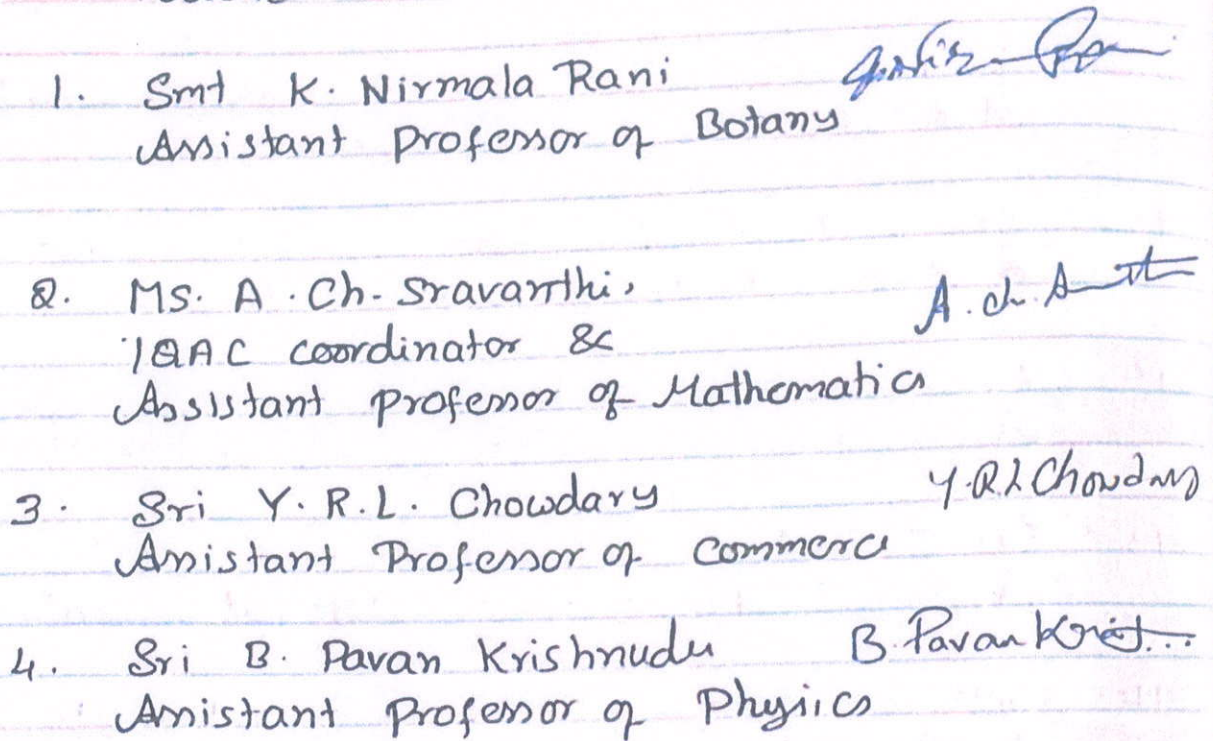 1. Smt K. Nirmala Rani
Assistant Professor of Botany
2. Ms. A. Ch. Sravanthi,
IQAC coordinator &
Assistant professor of Mathematics
A. ch.
3. Sri Y. R. L. Chowdary Y.R.L Chowdary
Assistant Professor of Commerce
4. Sri B. Pavan Krishnudu B. Pavan
Assistant professor of Physics